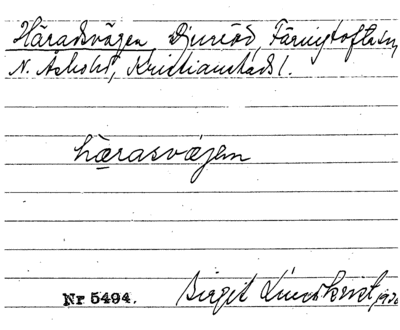 Häradsvägen, Djuröd, Färingtofta sn,
N. Åsbo hd, Kristianstads l.
hærasvægen
Nr 5494. Birgit Lindkvist 1930